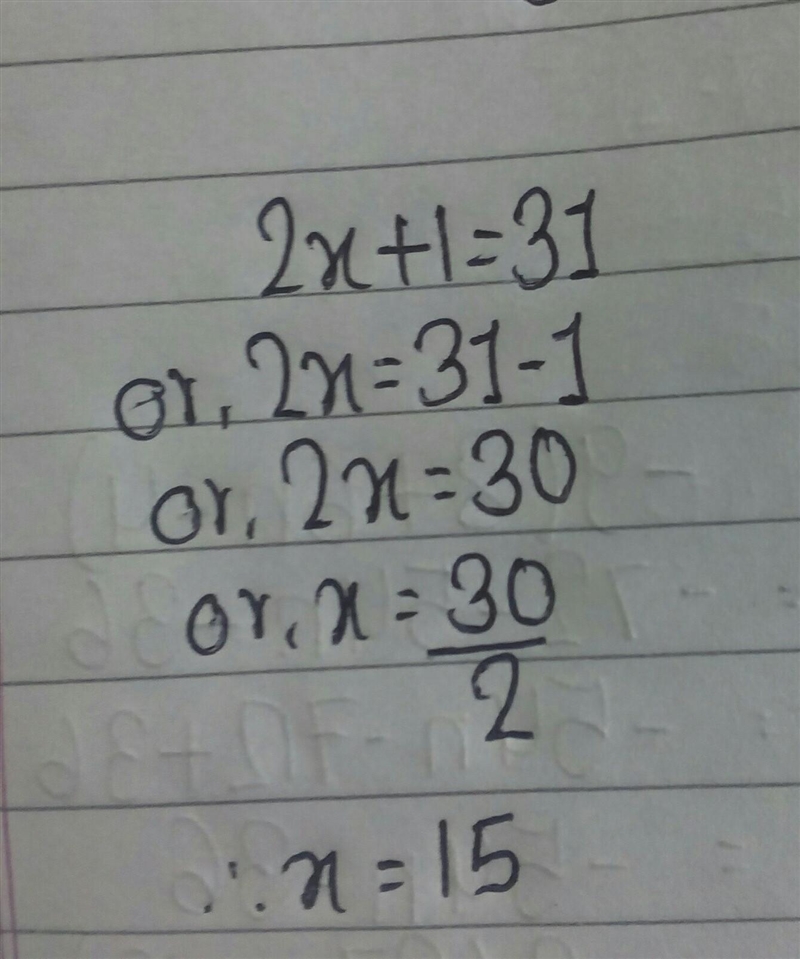 2x+1=31
or, 2x=31-1
or, 2x=30
or, x=30/2
∴x=15